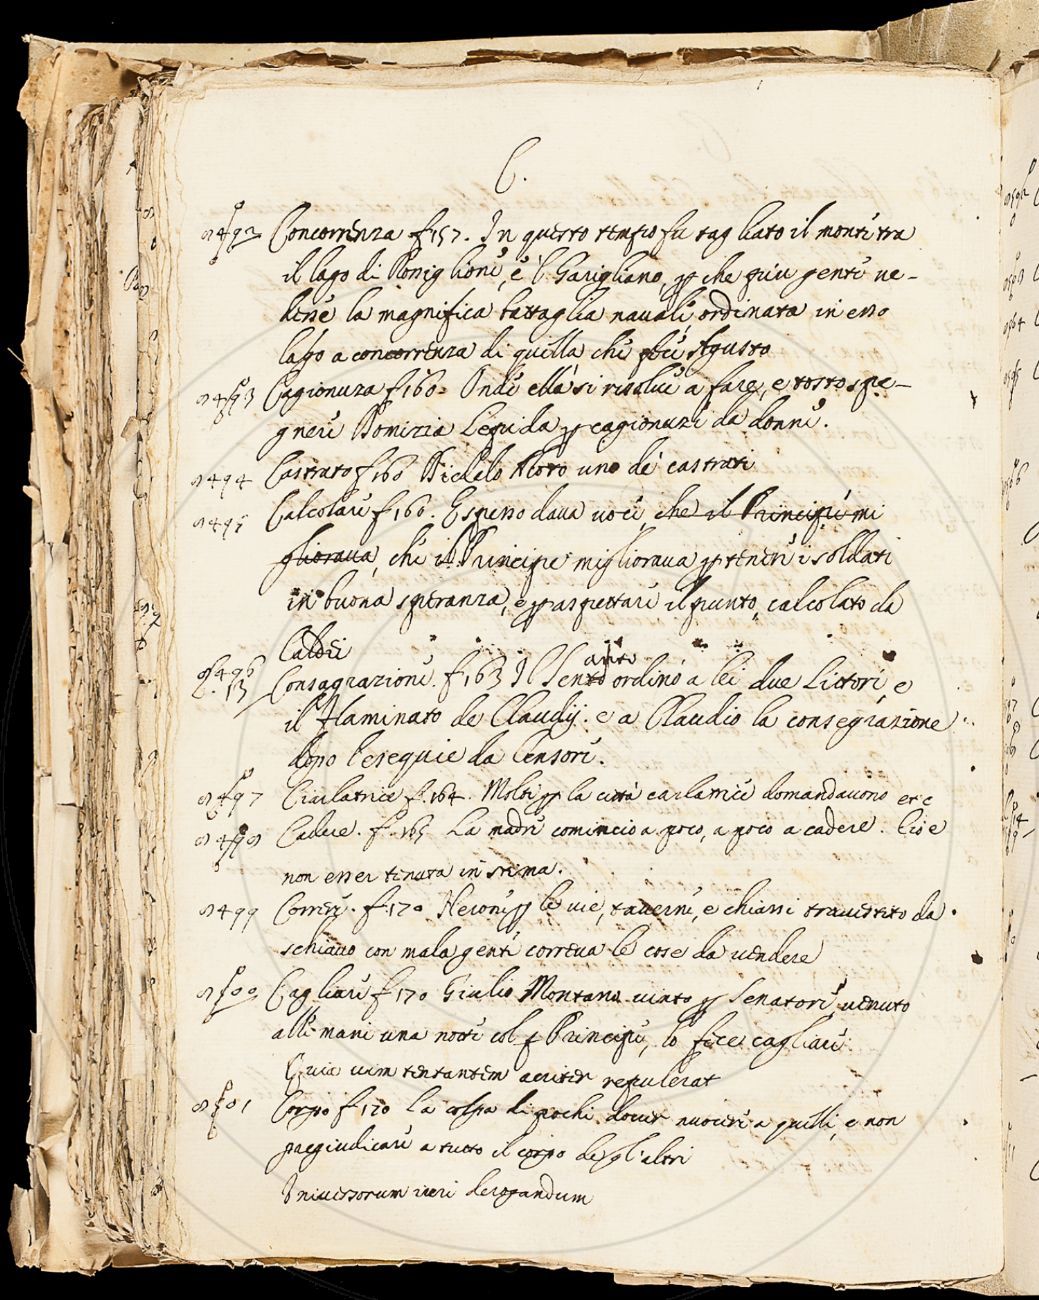 C.
492 Concorrenza f 157. In questo tempo fu tagliato il monte tra
il lago di Roniglione, e 'l Garigliano, che più gente ve-
desse la magnifica battaglia navale ordinata in esso
lago a concorrenza di quella che fece Agusto
493 Cagionuza f 160. Onde ella si risolve a fare, e tosto spe-
gnere Domizia Lepida cagionuze da donne.
494 Castrato f 160 Aloto uno de castrati
495 Calcolare f 160. Espesso dava voce che il Principe mi
gliorava, che il Principe migliorava tenere i soldati
in buona speranza, e aspettare il punto calcolato da
Caldei
496 Consagrazione. f 163 Il Senato ordinò a lei due Littori, e
L. 13 il Flaminato de Claudij. e a Claudio la consegrazione
dopo l'esequie da Censori.
497 Ciarlatrice f. 164. Molti la città carlatrice domandavono etc
498 Cadere. f. 165 La madre comincio a poco, a poco a cadere. Cioè
non esser tenuta in stima.
499 Correre. f. 170 Nerone le vie, taverne, e chiassi travestito da
schiavo con mala gente correva le cose da vendere
500 Cagliare f 170 Giulio Montano Senatore, venuto
alle mani una notte col Principe, lo fece cagliare.
Quia vim tentantem acriter repulerat
501 Corpo f 170 La colpa di pochi dover nuocere a quelli, e non
pregiudicare a tutto il corpo degl'altri
Universorum iuri derogandum